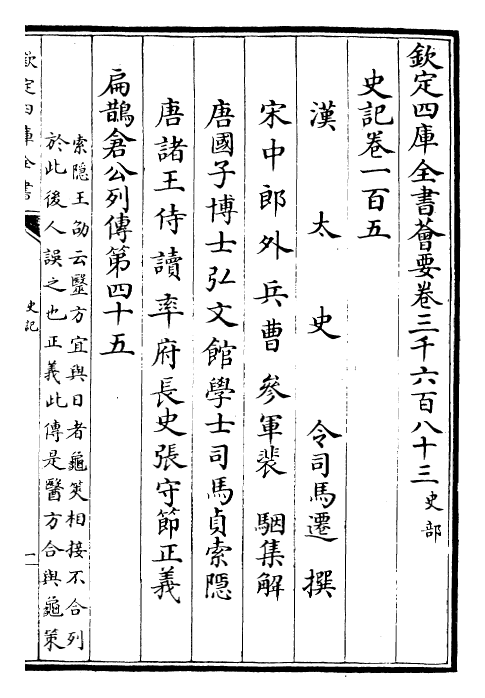 欽定四庫全書薈要卷三千六百八十三 史部
史記卷一百五
漢太史令司馬遷撰
宋中郎外兵曹參軍裴駰集解
唐國子博士弘文館學士司馬貞索隱
唐諸王侍讀率府長史張守節正義
扁鵲倉公列傳第四十五
索隱王劭云毉方宜與日者龜筴相接不合列
於此後人誤之也正義此傳是醫方合與龜策
欽定四庫全書
史記
一